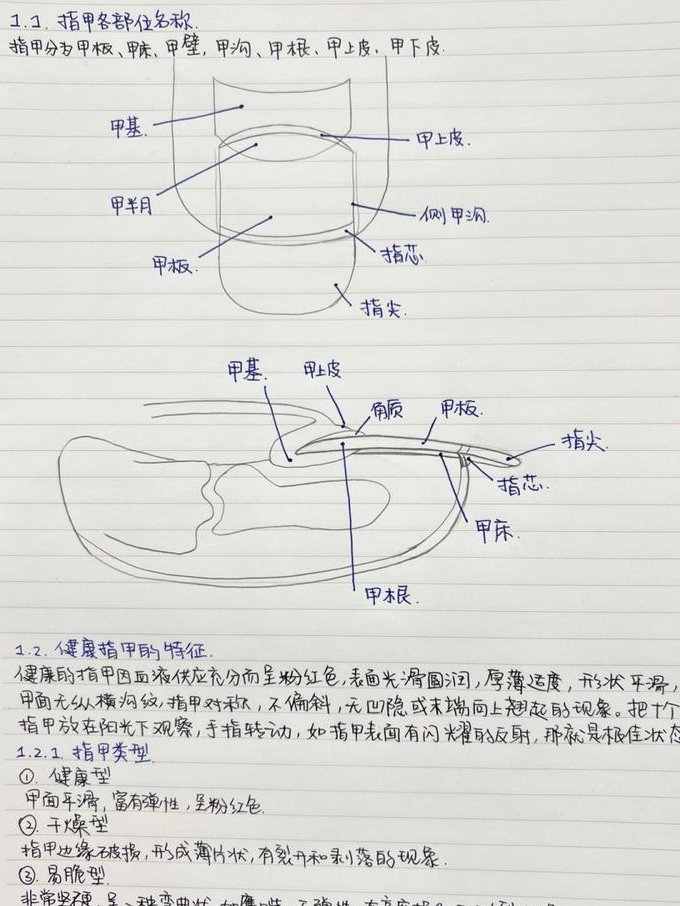 1.1. 指甲各部位名称.
指甲分为甲板、甲床、甲壁、甲沟、甲根、甲上皮、甲下皮.
甲基.
甲上皮.
甲半月
侧甲沟.
指芯.
甲板.
指尖.
甲基.
甲上皮
角质
甲板.
指尖.
指芯.
甲床.
甲根.
1.2. 健康指甲的特征.
健康的指甲因血液供应充分而呈粉红色,表面光滑圆润,厚薄适度,形状平滑,
甲面无纵横沟纹,指甲对称,不偏斜,无凹隐或末端向上翘起的现象。把十个
指甲放在阳光下观察,手指转动,如指甲表面有闪耀的反射,那就是极佳状态
1.2.1. 指甲类型.
①. 健康型
甲面平滑,富有弹性,呈粉红色.
②. 干燥型
指甲边缘破损,形成薄片状,有裂开和剥落的现象.
③. 易脆型.
非常坚硬,呈